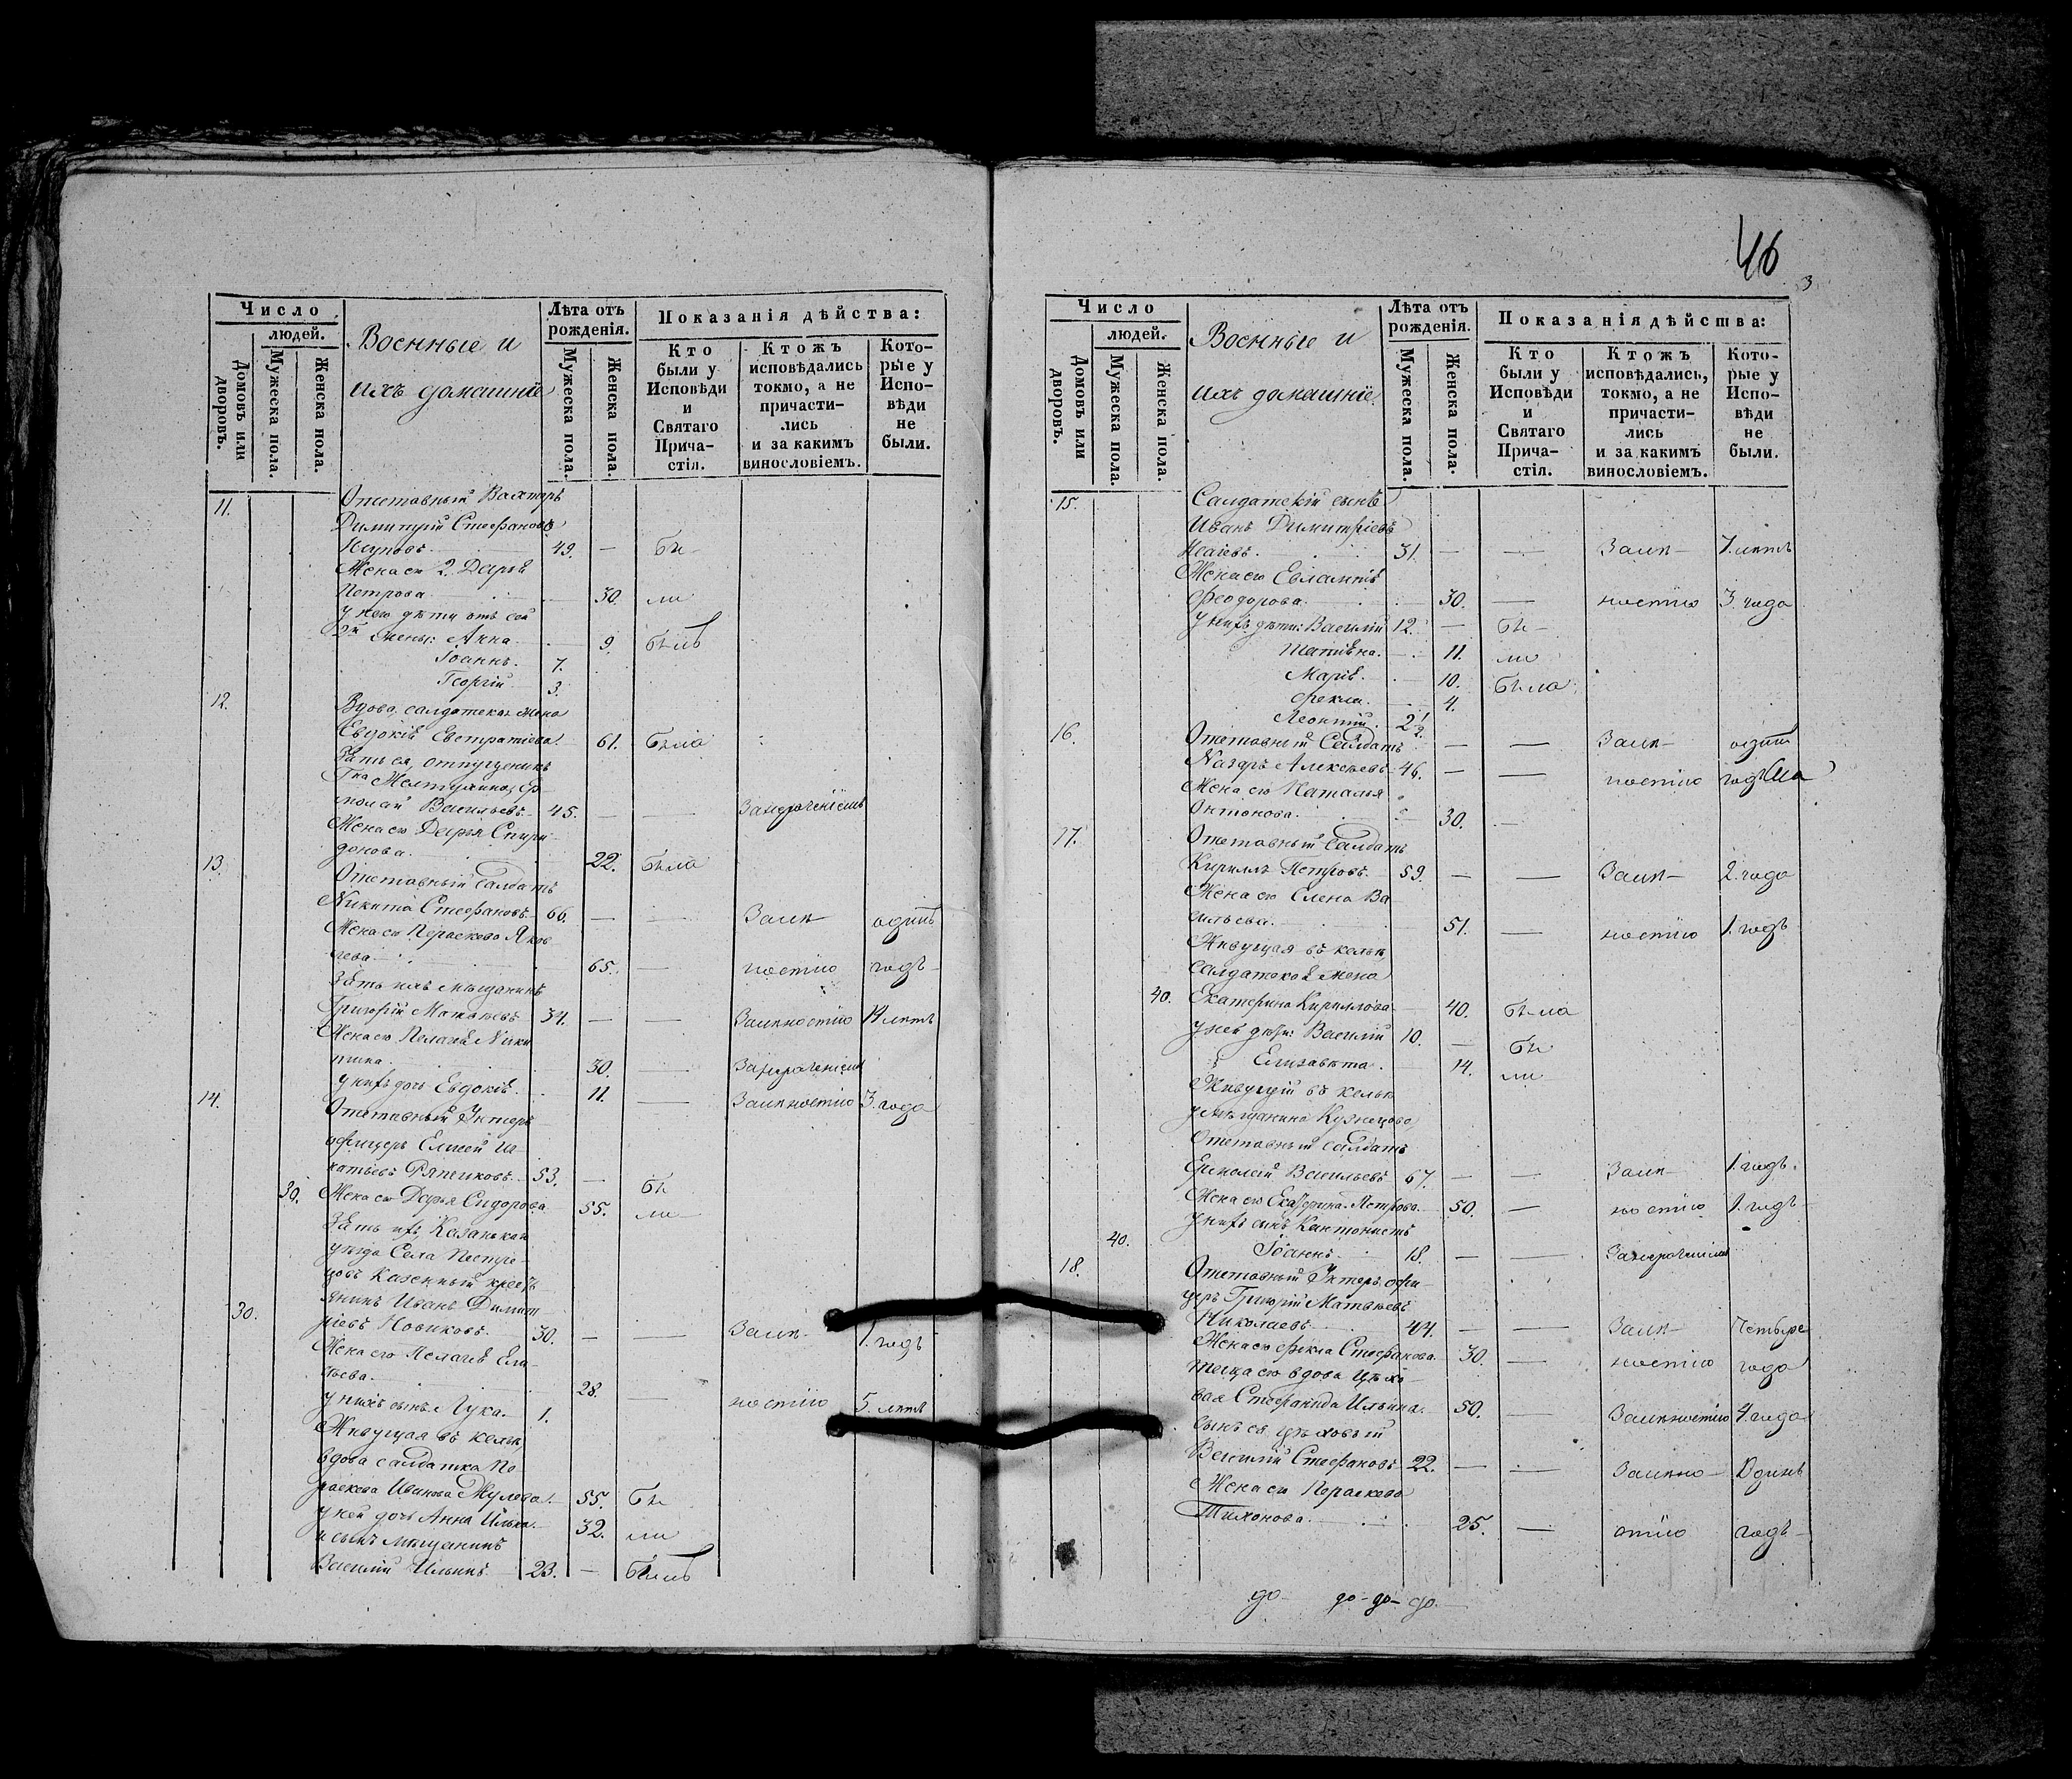 Число
людей.
Домовъ или дворовъ.
Мужеска пола.
Женска пола.
Военные и
ихъ домашніе
Лѣта отъ рожденія.
Мужеска пола.
Женска пола.
Показанія дѣйства:
Кто были у Исповѣди и Святаго Прича-стія.
Ктожъ исповѣдались токмо, а не причасти-лись и за какимъ винословіемъ.
Кото-рые у Испо-вѣди не были.
11. Отставный Вахтеръ
Димитрій Стефановъ
49. — Бы-
Жена его 2. Дарья
Петрова. 30. ли
у него дѣти отъ сей
2й жены: Анна. 9. былъ
Іоаннъ. 7.
Георгій 3.
12. Вдова, салдатская жена
Евдокія Евстратіева. 61. была
Зять ея, отпущеникъ
Васильевъ. 45. — — За нераченіемъ
Жена его Дарья Спири-
донова. 22. была
13. Отставный Салдатъ
Никита Стефановъ 66. — — Заик- одинъ
Жена его Параскева Яков-
лева 65. — ностію годъ
Зять ихъ мѣщанинъ
Григорій Матвѣевъ 34. — — Заикностію 14 лѣтъ
Жена его Пелагія Ники-
тина. 30. — За нераченіемъ
у нихъ дочь Евдокія. 11. — Заикностію 3. года
14. Отставный Унтеръ
офицеръ Елисей Иг-
натьевъ 53. — Бы
30. Жена его Дарья Сидорова 55. ли
Зять ихъ, Казанской
уѣзда Села Пестре-
цовъ казенный кресть-
янинъ Иванъ Димит-
30. ріевъ Новиковъ. 30. — — Заик- 1. годъ
Жена его Пелагея Ели-
28. — ностію 5. лѣтъ
у нихъ сынъ Лука. 1.
Живущая въ кельи
вдова салдатка Па-
раскева Иванова 55. Бы
у ней дочь Анна Ильина 32. ли
и сынъ мѣщанинъ
Василій Ильинъ 23. — Былъ
46
3
Число
людей.
Домовъ или дворовъ.
Мужеска пола.
Женска пола.
Военные и
ихъ домашніе.
Лѣта отъ рожденія.
Мужеска пола.
Женска пола.
Показанія дѣйства:
Кто были у Исповѣди и Святаго Прича-стія.
Ктожъ исповѣдались, токмо, а не причасти-лись и за какимъ винословіемъ.
Кото-рые у Испо-вѣди не были.
15. Салдатскій сынъ
Иванъ Димитріевъ
Исаевъ. 31. — — Заик- 7. лѣтъ
Жена его Евлампія
Феодорова. 30. — ностію 3. года
у нихъ дѣти: Василій 12. — Бы-
Татіяна. 11. ли
Марія. 10. была
Фекла. 4.
Леонтій. 2 1/2.
16. Отставный Салдатъ — — Заик- одинъ
Назаръ Алексѣевъ 46. — — ностію годъ
Жена его Наталья
Антонова. 30. —
17. Отставный Салдатъ
Кириллъ Петровъ. 59. — — Заик- 2. года
Жена его Елена Ва-
сильева. 51. — ностію 1. годъ
Живущая въ кельи,
салдатская жена
40. Екатерина Кириллова 40. была
у ней дѣти: Василій 10. — Бы
Елизавета. 14. ли
Живущій въ кельи
у мѣщанина Кузнецова,
Отставный салдатъ
Васильевъ 67. — — Заик- 1. годъ.
Жена его Екатерина Петрова. 50. — ностію 1. годъ
у нихъ сынъ Кантонистъ
40. Іоаннъ. 18. — — За нераченіемъ
18. Отставный Унтеръ офи-
церъ Григорій Матвѣевъ
Николаевъ. 44. — — Заик- Четыре
Жена его Фекла Стефанова. 30. — ностію года
теща его вдова цѣхо-
вая Стефанида Ильина. 50. — Заикностію 4. года
сынъ ея цѣховый
Василій Стефановъ 22. — — Заикно- Одинъ
Жена его Параскева
Тихонова. 25. — стію годъ
до- до- до- до-